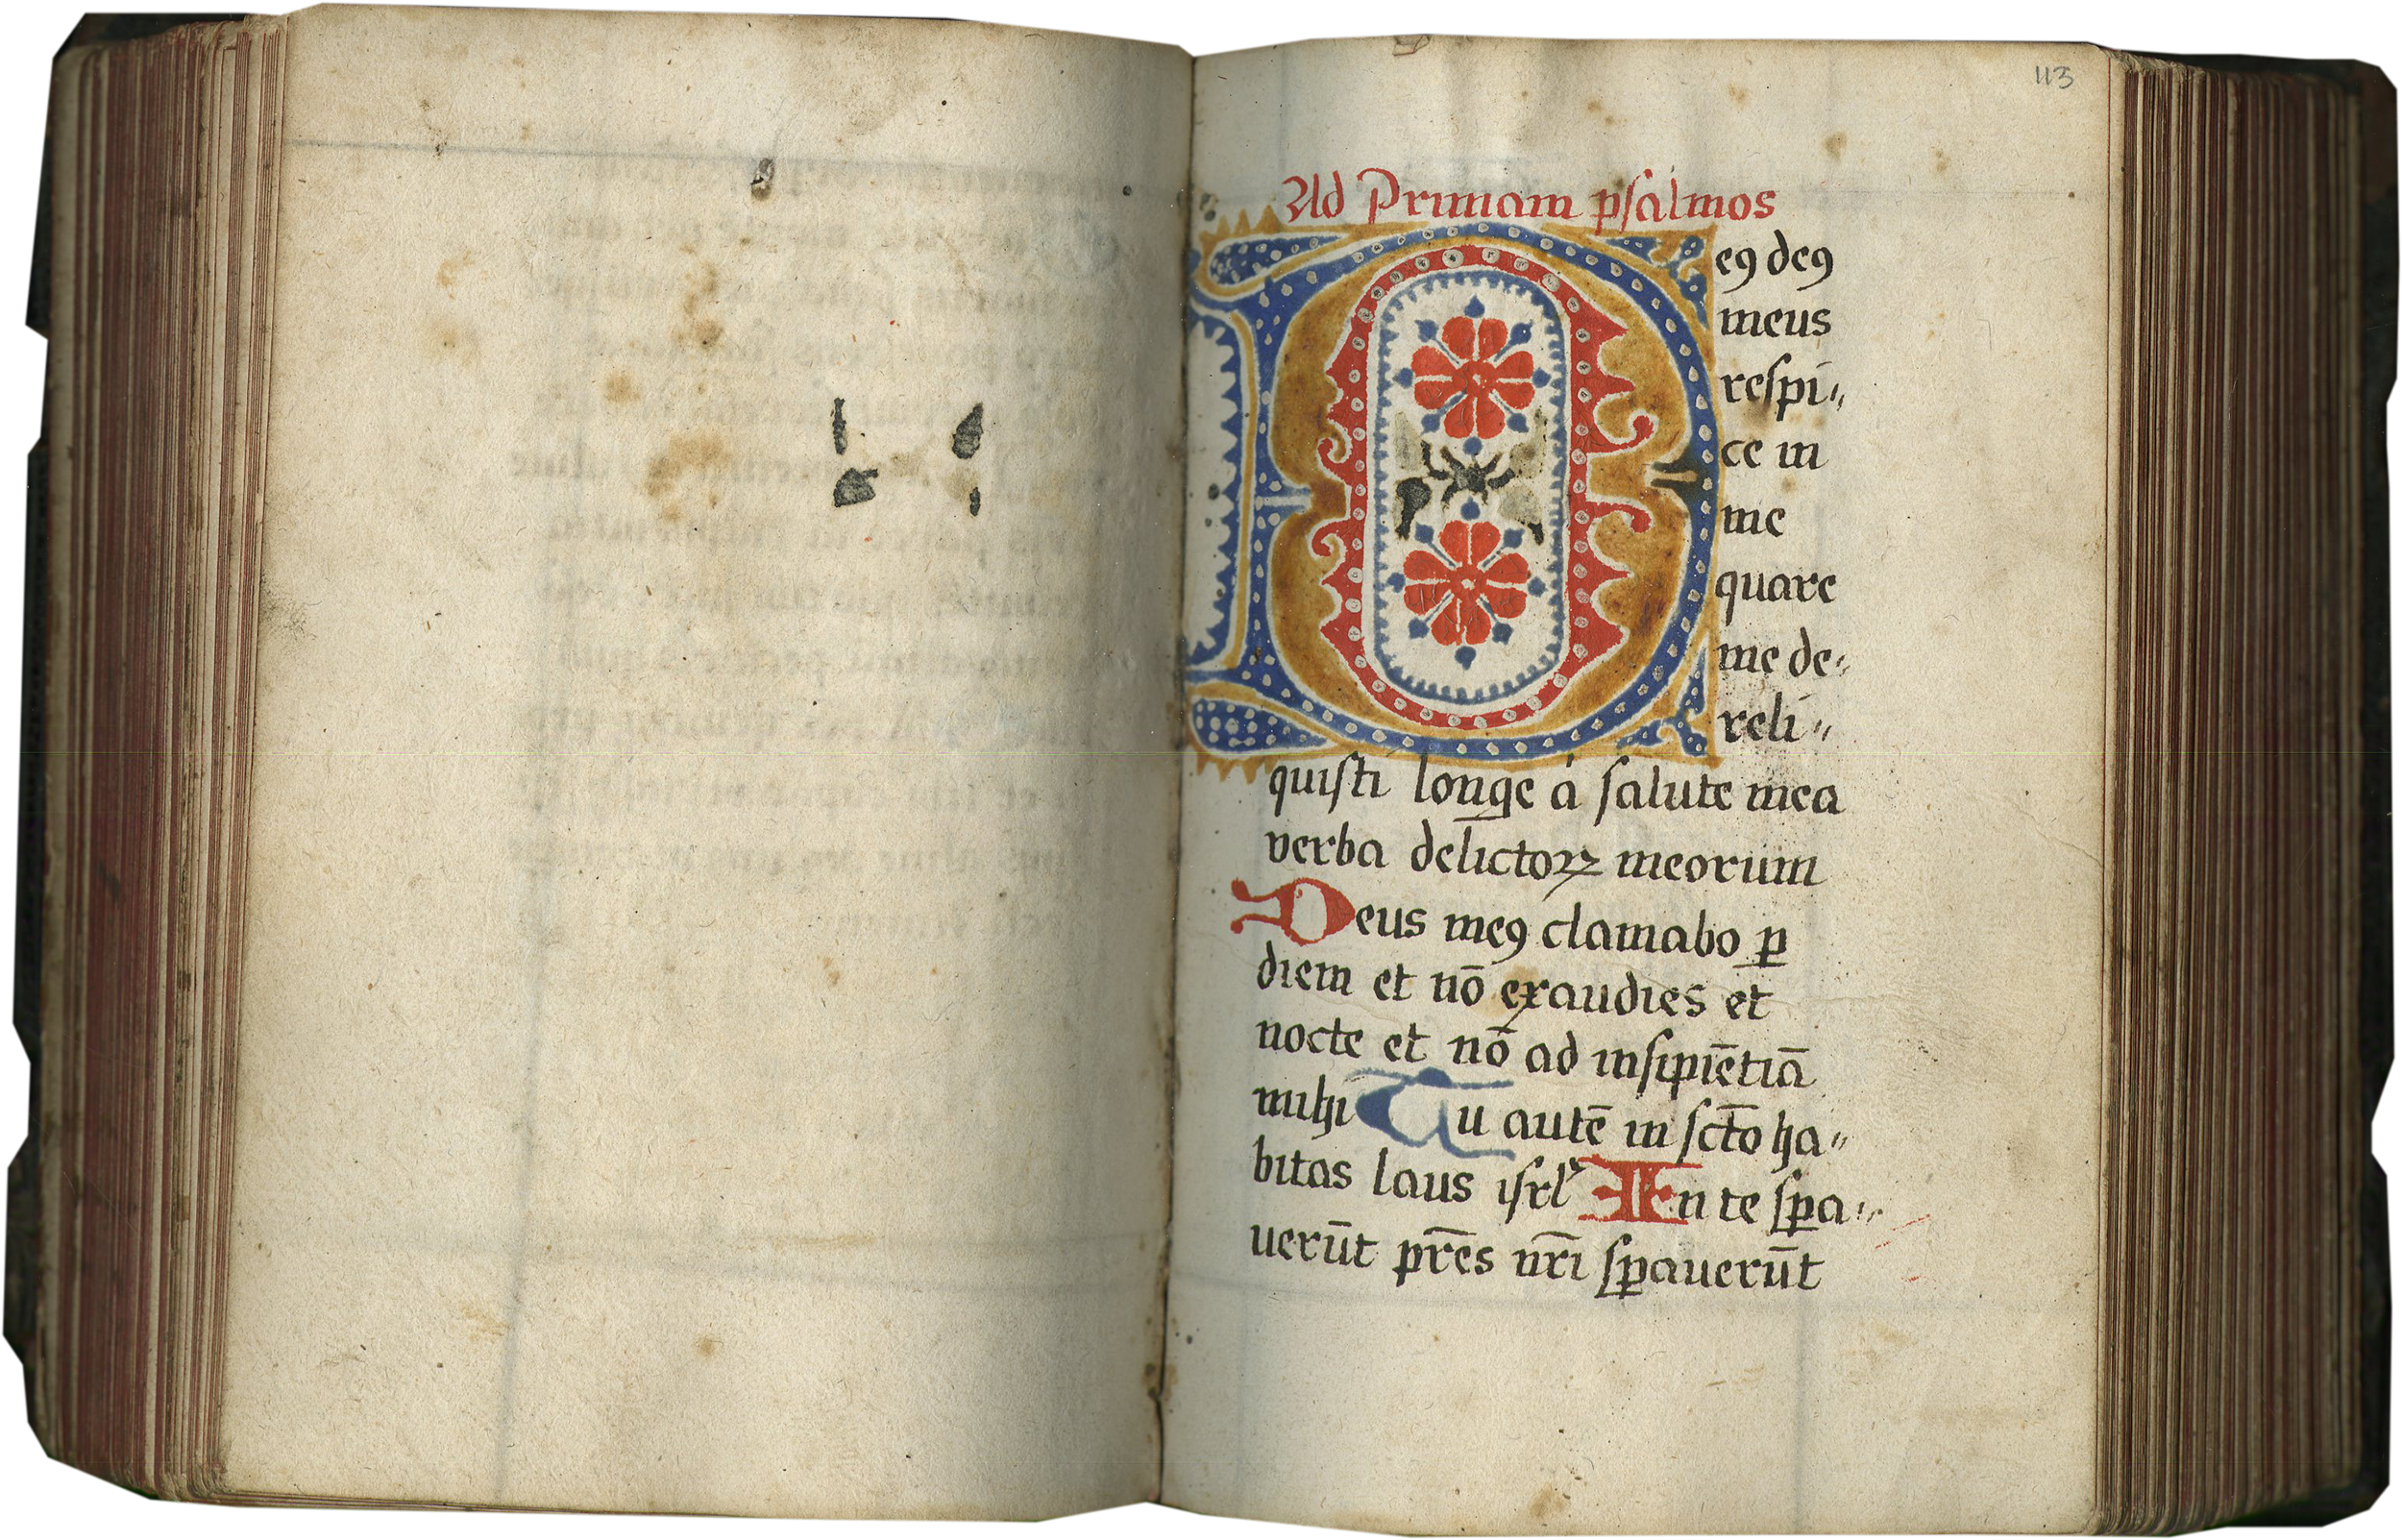 113
Ad Primam psalmos
Deꝰ deꝰ
meus
respi〃
ce in
me
quare
me de〃
reli〃
quisti longe á salute mea
verba delictoꝝ meorum
Deus meꝰ clamabo ꝑ
diem et nō exaudies et
nocte et nō ad insipiētiā
mihi Tu autē in sct̄o ha〃
bitas laus isrl̓ In te sꝑa〃
uerūt pr̄es nr̄i sꝑauerūt